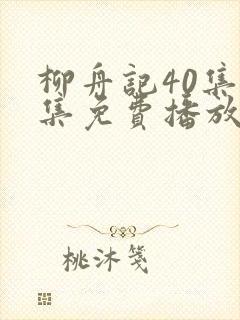 柳舟記40集
集免費播放
桃沐箋